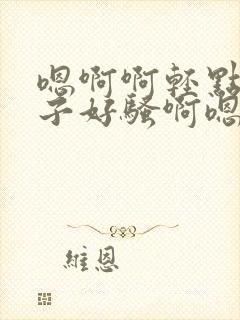 嗯啊啊輕點
子好騷啊嗯
維恩